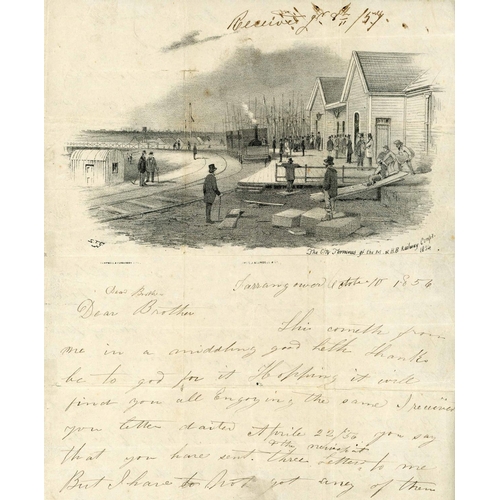 Received
S.T.G
The City Terminus of the M. & H.B Railway Compy. 1854
Dear Brother
10 1856
Dear Brother
This cometh from
me in a middling good helth thanks
be to god for it Hopping it will
find you all Enjoying the same I recived
you letter daited Aprile 22/56 you say
& the
that you have sent three Letters to me
But I have to Not got aney of them